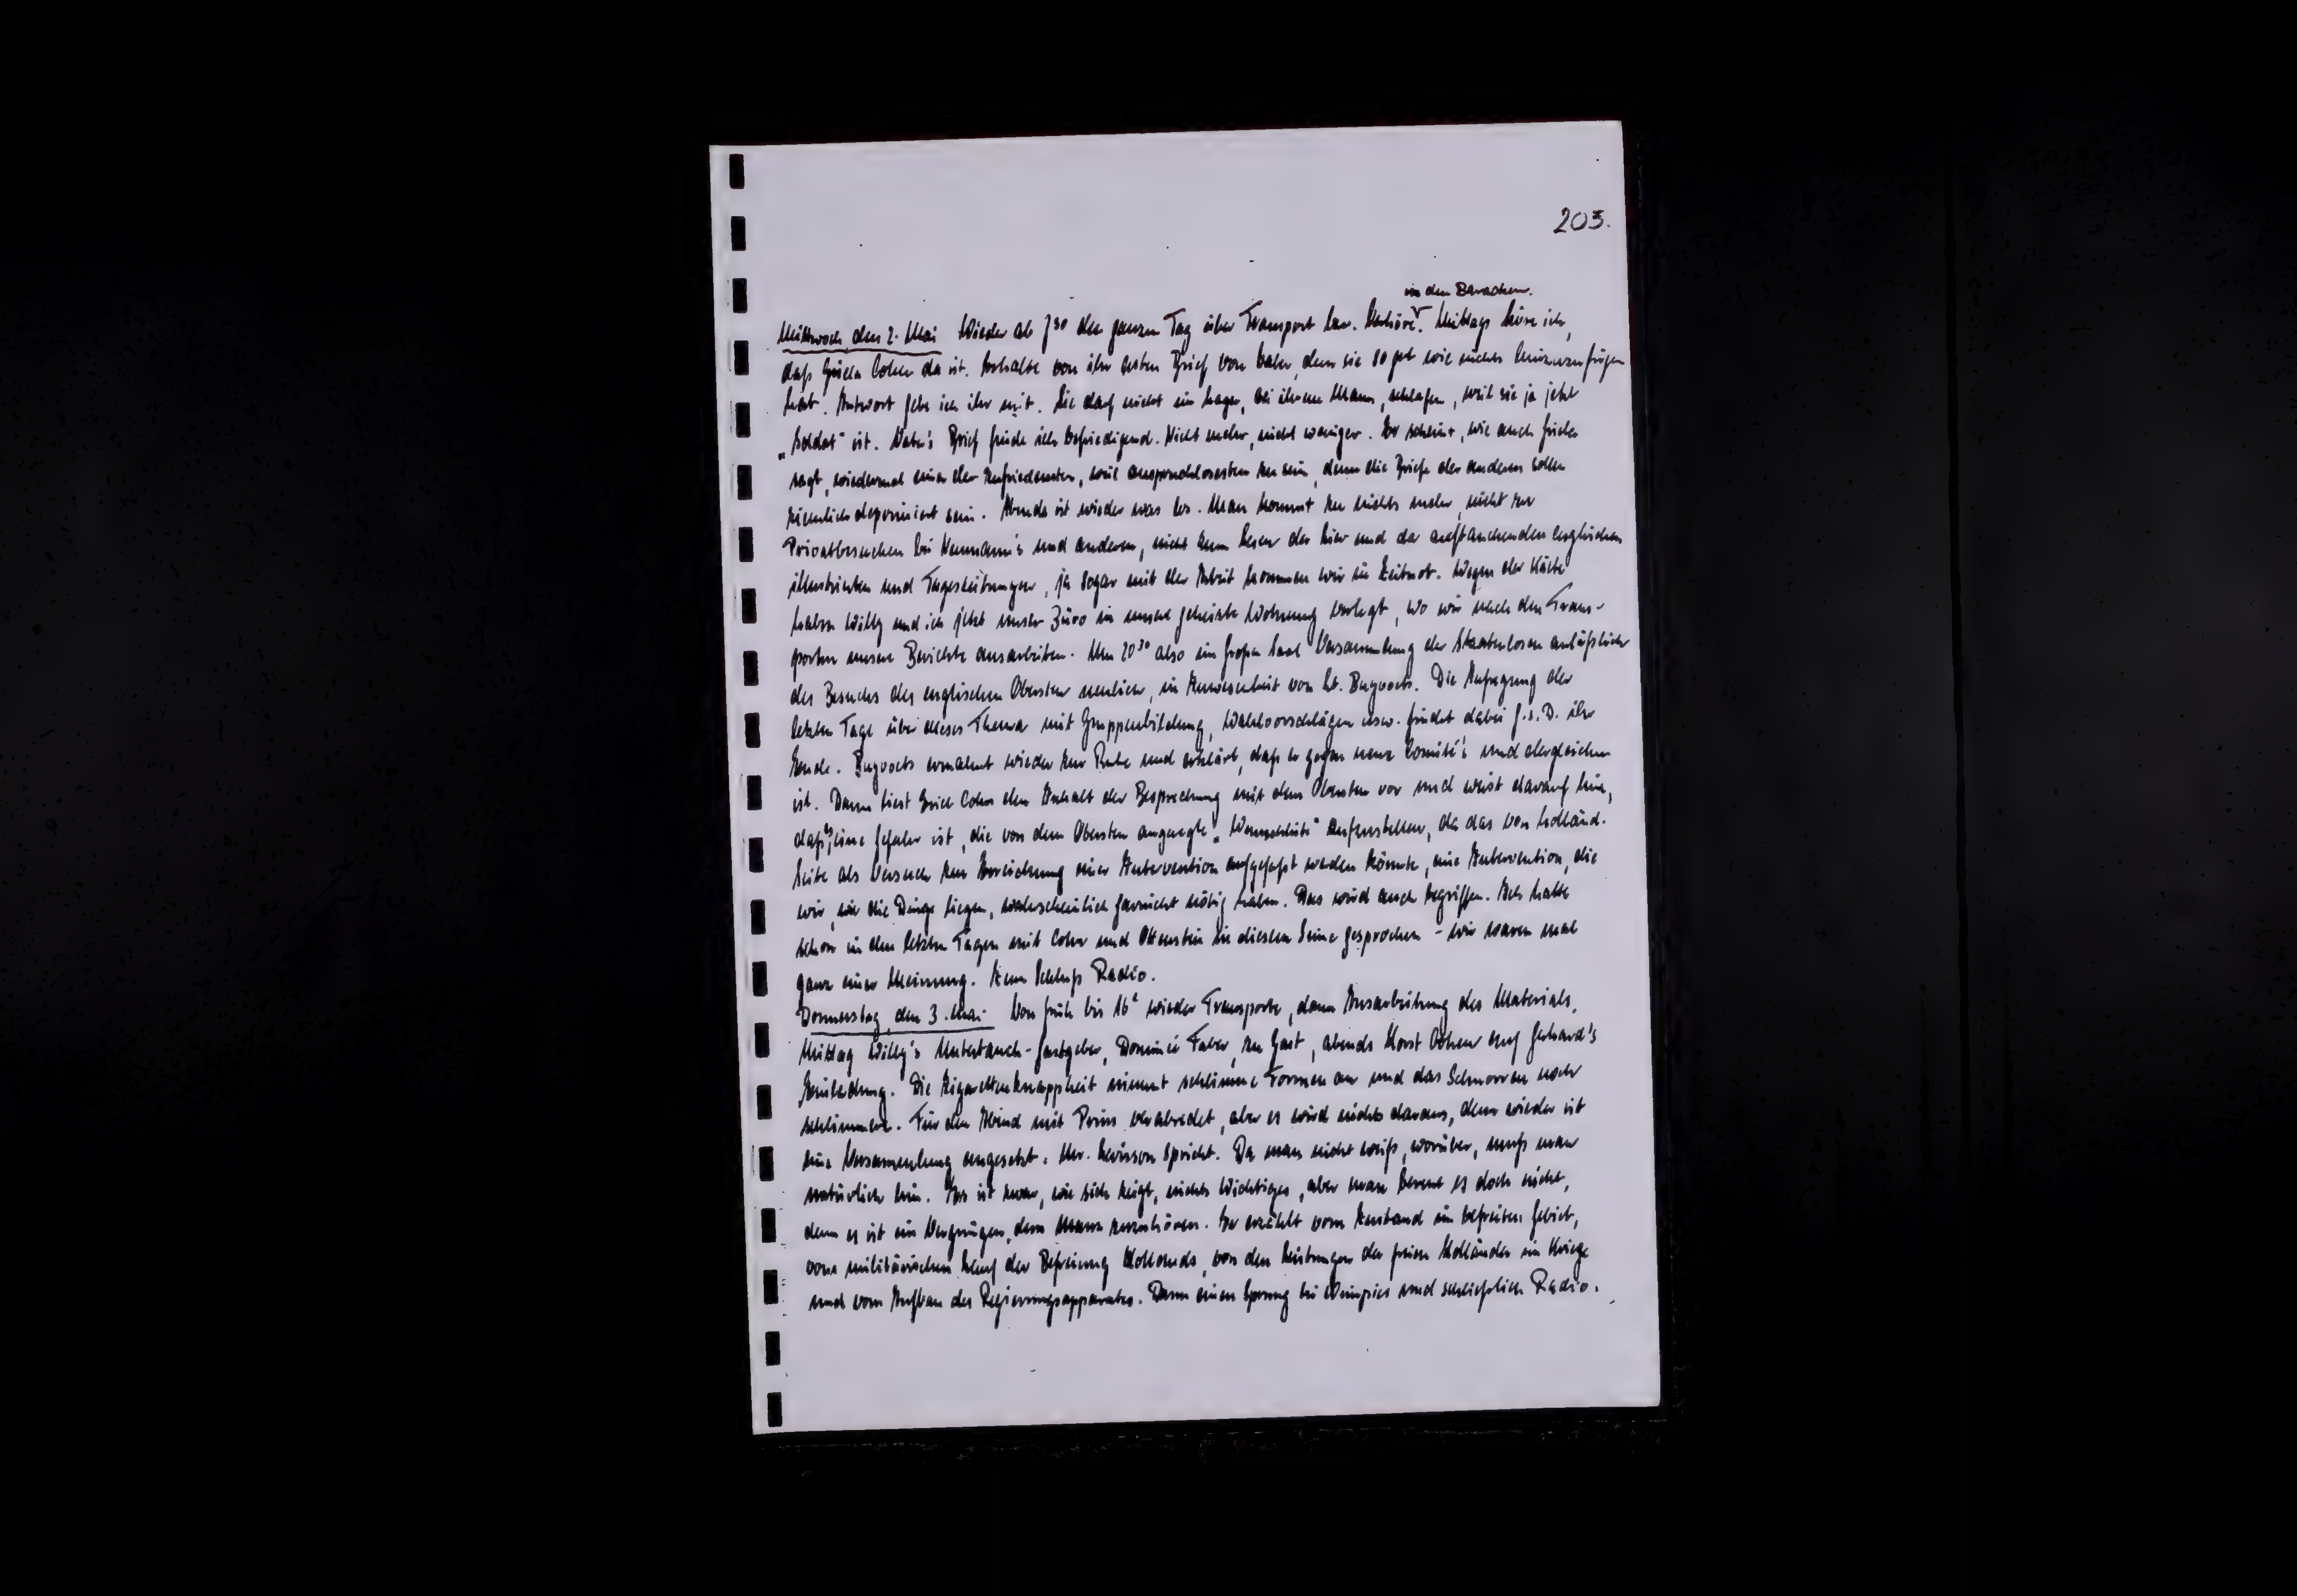 203.
in den Baracken.
Mittwoch, den 2. Mai Wieder ab 7³⁰ den ganzen Tag über Transport bzw. Verhöre. Mittags höre ich,
daß Gisela Cohen da ist. Erhalte von ihr ersten Brief von Vater, dem sie so gut wie nichts hinzuzufügen
hat. Antwort gebe ich ihr mit. Sie darf nicht im Lager, bei ihrem Mann, schlafen, weil sie ja jetzt
„Soldat" ist. Vater's Brief finde ich befriedigend. Nicht mehr, nicht weniger. Er scheint, wie auch
sagt, wiedermal einer der Zufriedensten, weil anspruchlosesten zu sein, denn die Briefe der anderen sollen
ziemlich deprimiert sein. Abends ist wieder was los. Man kommt zu nichts mehr, nicht zu
Privatbesuchen bei Neumann's und anderen, nicht zum Lesen der hier und da auftauchenden englischen
Illustrierten und Tageszeitungen, ja sogar mit der Arbeit kommen wir in Zeitnot. Wegen der Kälte
haben Willy und ich jetzt unser Büro in unsere geheizte Wohnung verlegt, wo wir nach den Trans-
porten unsere Berichte ausarbeiten. Um 20³⁰ also im großen Saal Versammlung der Staatenlosen anläßlich
des Besuchs des englischen Obersten neulich, in Anwesenheit von Lt. Bugvoets. Die Aufregung der
letzten Tage über dieses Thema mit Gruppenbildung, Wahlvorschlägen usw. findet dabei G.s.D. ihr
Ende. Bugvoets ermahnt wieder zur Ruhe und erklärt, daß er gegen neue Comité's und dergleichen
ist. Dann liest Erich Cohn den Inhalt der Besprechung mit dem Obersten vor und weist darauf hin,
daß es eine Gefahr ist, die von dem Obersten angeregte „Wunschliste" aufzustellen, da das von holländ.
Seite als Versuch zur Erreichung einer Intervention aufgefaßt werden könnte, eine Intervention, die
wir, wie die Dinge liegen, wahrscheinlich garnicht nötig haben. Das wird auch begriffen. Ich hatte
schon in den letzten Tagen mit Cohn und Ottenstein in diesem Sinne gesprochen - wir waren mal
ganz einer Meinung. Zum Schluß Radio.
Donnerstag, den 3. Mai Von früh bis 16ᵉ wieder Transporte, dann Ausarbeitung des Materials.
Mittag Willy's Untertauch-Gastgeber, Dominé Faber, zu Gast, abends Horst Cohen auf Gerhard's
Einladung. Die Zigarettenknappheit nimmt schlimme Formen an und das Schnorren noch
schlimmere. Für den Abend mit Prins verabredet, aber es wird nichts daraus, denn wieder ist
eine Versammlung angesetzt. Mr. Levinson spricht. Da man nicht weiß, worüber, muß man
natürlich hin. Es ist zwar, wie sich zeigt, nichts Wichtiges, aber man bereut es doch nicht,
denn es ist ein Vergnügen, dem Mann zuzuhören. Er erzählt vom Zustand im befreiten Gebiet,
vom militärischen Lauf der Befreiung Hollands, von den Leistungen der freien Holländer im Kriege
und vom Aufbau des Regierungsapparates. Dann einen Sprung bei und schließlich Radio.